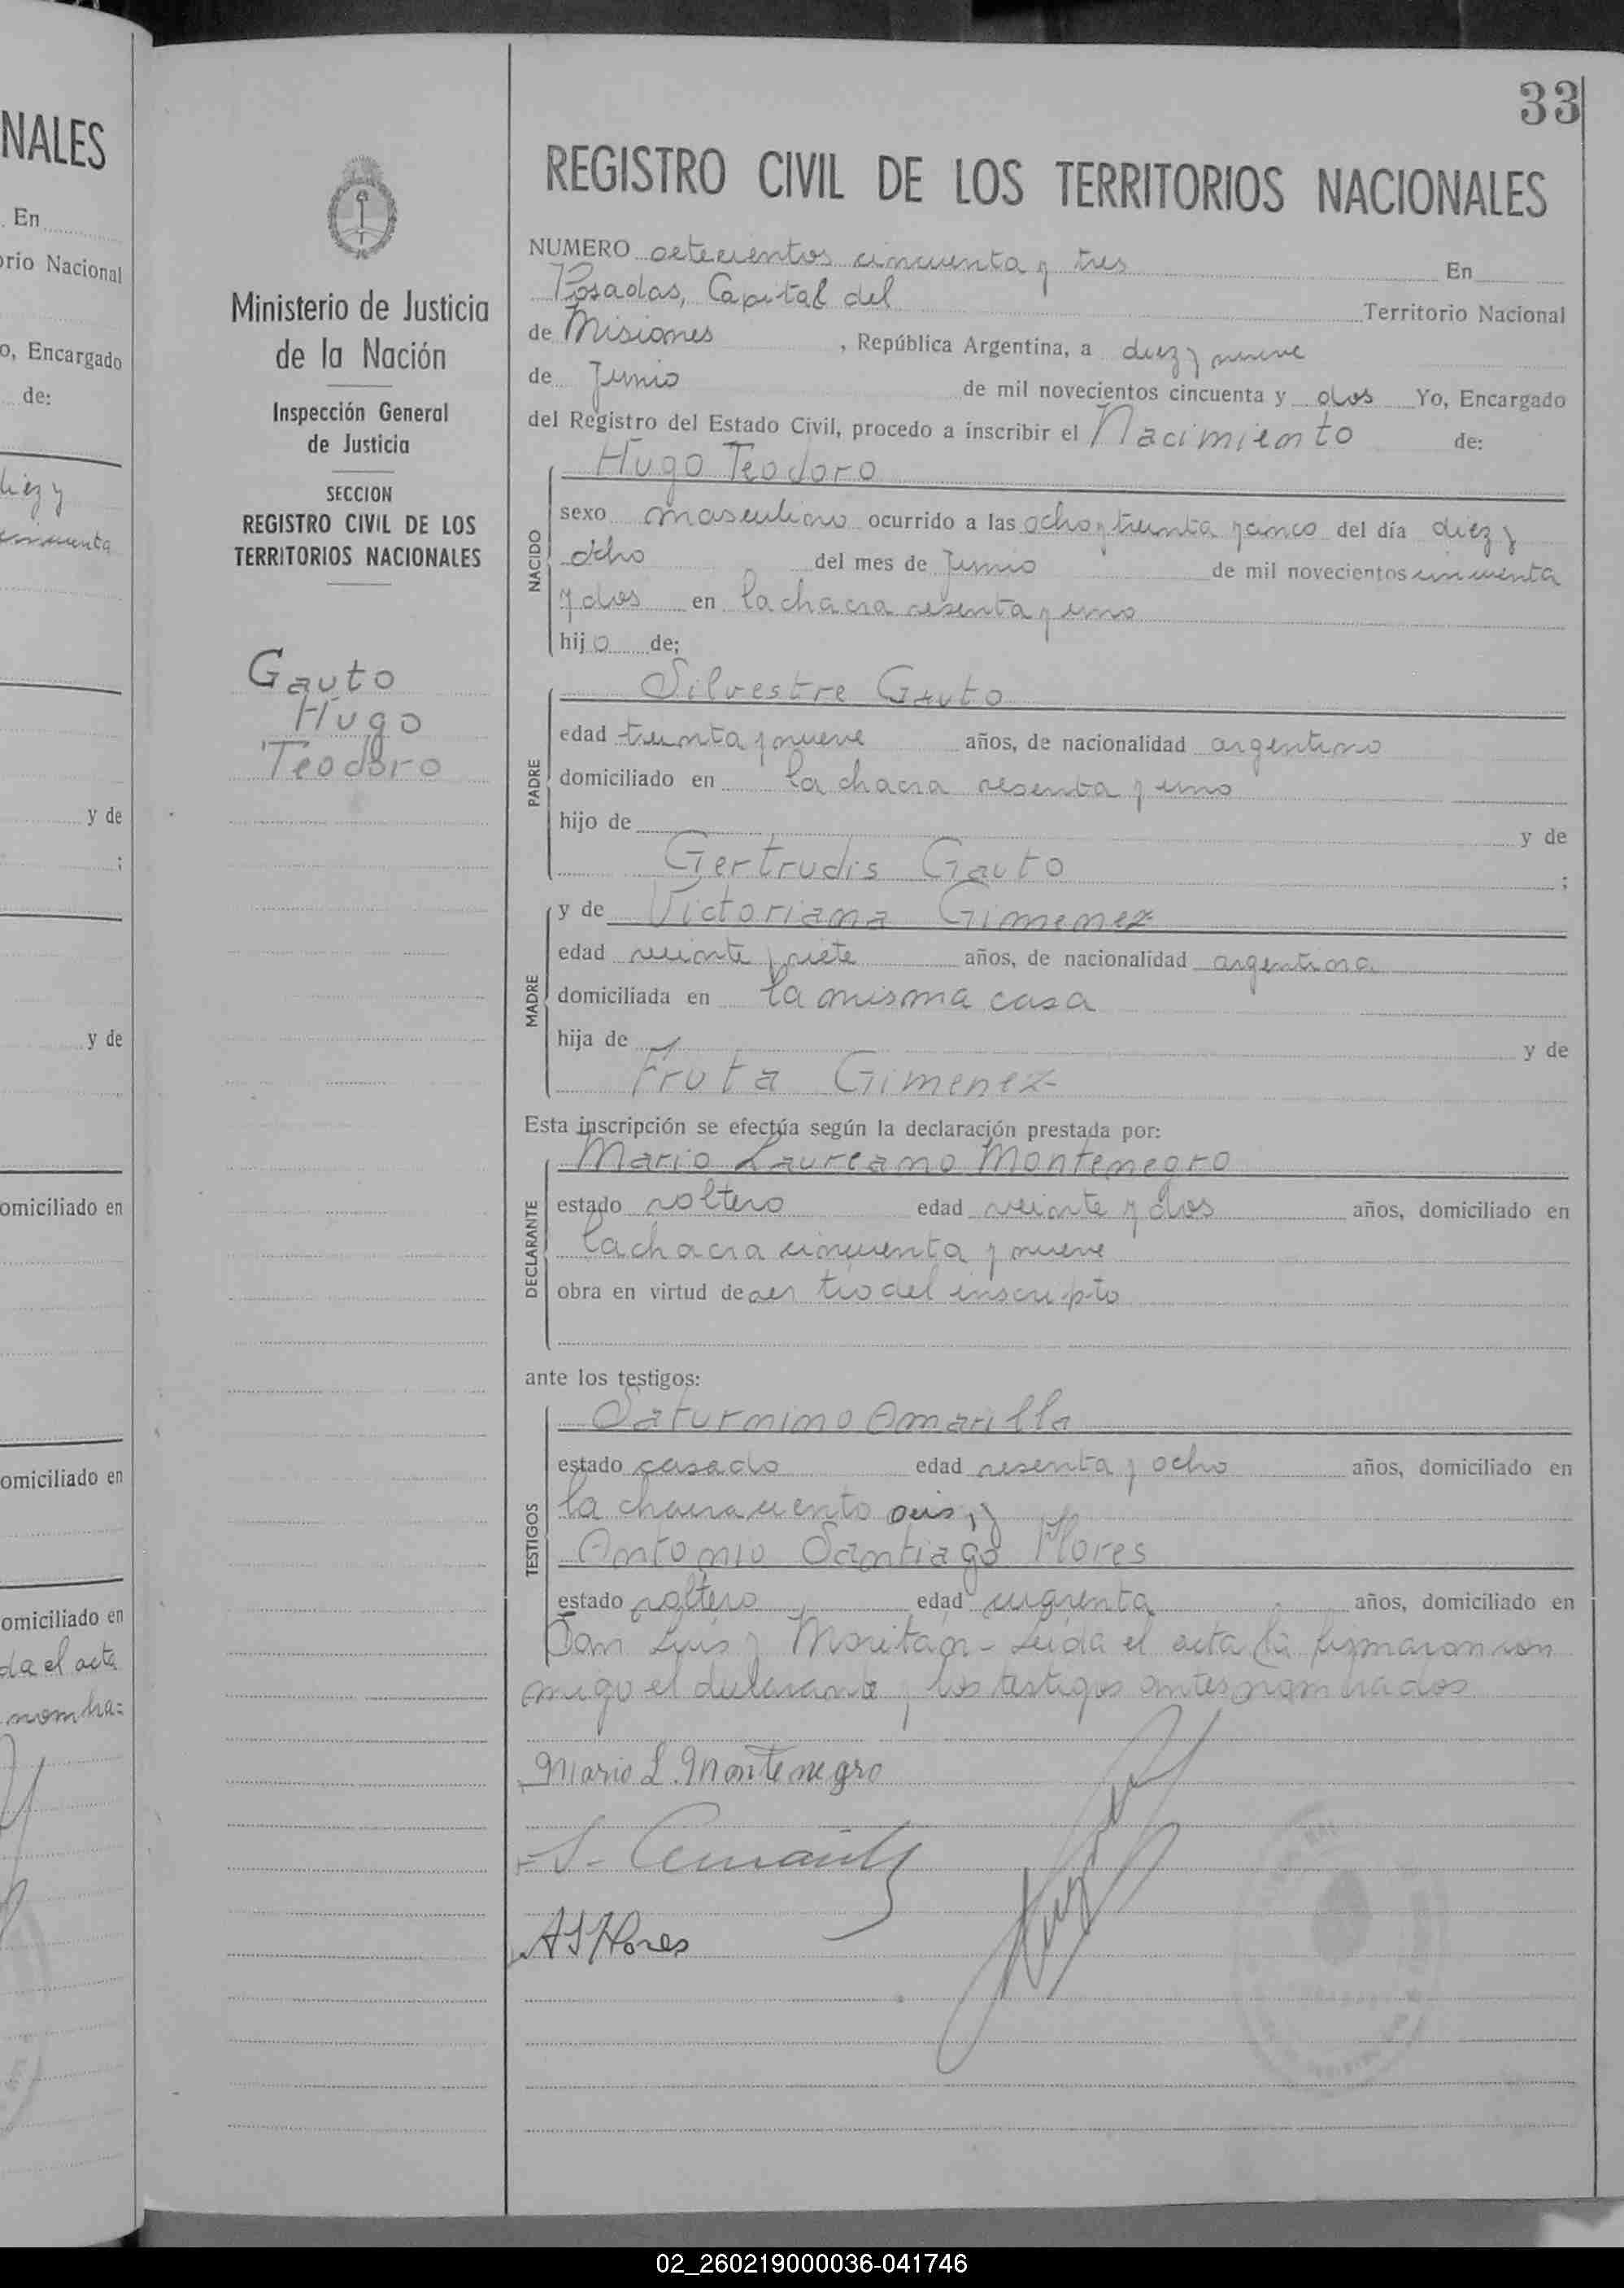 NALES
. En
orio Nacional
o, Encargado
de:
diez y
cincuenta
y de
;
y de
omiciliado en
omiciliado en
omiciliado en
da el acta
nombra=
Ministerio de Justicia
de la Nación
Inspección General
de Justicia
SECCION
REGISTRO CIVIL DE LOS
TERRITORIOS NACIONALES
Gauto
Hugo
Teodoro
33
REGISTRO CIVIL DE LOS TERRITORIOS NACIONALES
NUMERO setecientos cincuenta y tres En
Posadas, Capital del Territorio Nacional
de Misiones , República Argentina, a diez y nueve
de Junio de mil novecientos cincuenta y dos Yo, Encargado
del Registro del Estado Civil, procedo a inscribir el Nacimiento de:
Hugo Teodoro
NACIDO
sexo masculino ocurrido a las ocho y treinta y cinco del día diez y
ocho del mes de Junio de mil novecientos cincuenta
y dos en la chacra sesenta y uno
hijo de;
Silvestre Gauto
PADRE
edad treinta y nueve años, de nacionalidad argentino
domiciliado en la chacra sesenta y uno
hijo de y de
Gertrudis Gauto ;
y de Victoriana Gimenez
MADRE
edad veinte y siete años, de nacionalidad argentina
domiciliada en la misma casa
hija de y de
Fruta Gimenez
Esta inscripción se efectúa según la declaración prestada por:
Mario Laureano Montenegro
DECLARANTE
estado soltero edad veinte y dos años, domiciliado en
la chacra cincuenta y nueve
obra en virtud de ser tio del inscripto
ante los testigos:
Saturnino Amarilla
TESTIGOS
estado casado edad sesenta y ocho años, domiciliado en
la chacra ciento seis, y
Antonio Santiago Flores
estado soltero edad cuarenta años, domiciliado en
San Luis y Moritán - Leida el acta la firmaron con
migo el declarante y los testigos antes nombrados
Mario L. Montenegro
S. Amarilla
A S Flores
02_260219000036-041746